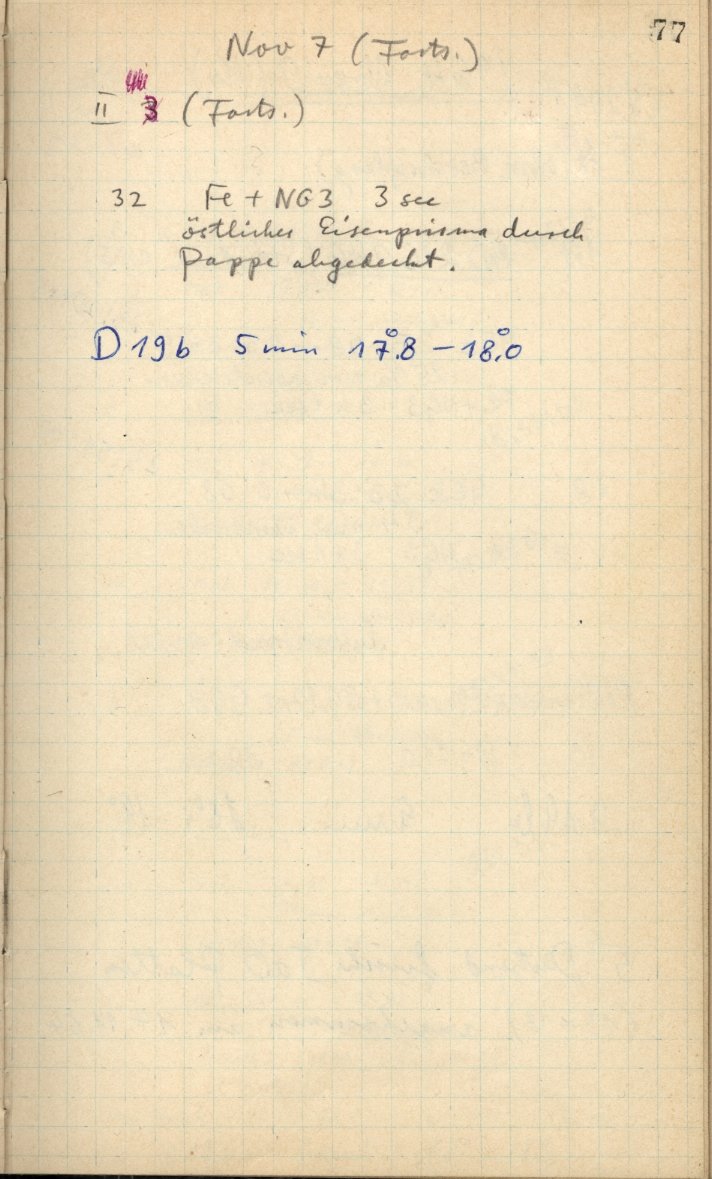 77
Nov 7 (Forts.)
II 3 (Forts.)
32 Fe + NG3 3 sec
östliches Eisenprisma durch
Pappe abgedeckt.
D 19b 5 min 17°.8 – 18°.0